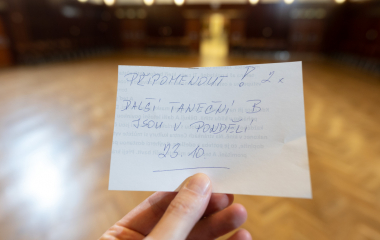 PŘIPOMENOUT 2x
DALŠÍ TANEČNÍ B
JSOU V PONDĚLÍ
23.10.